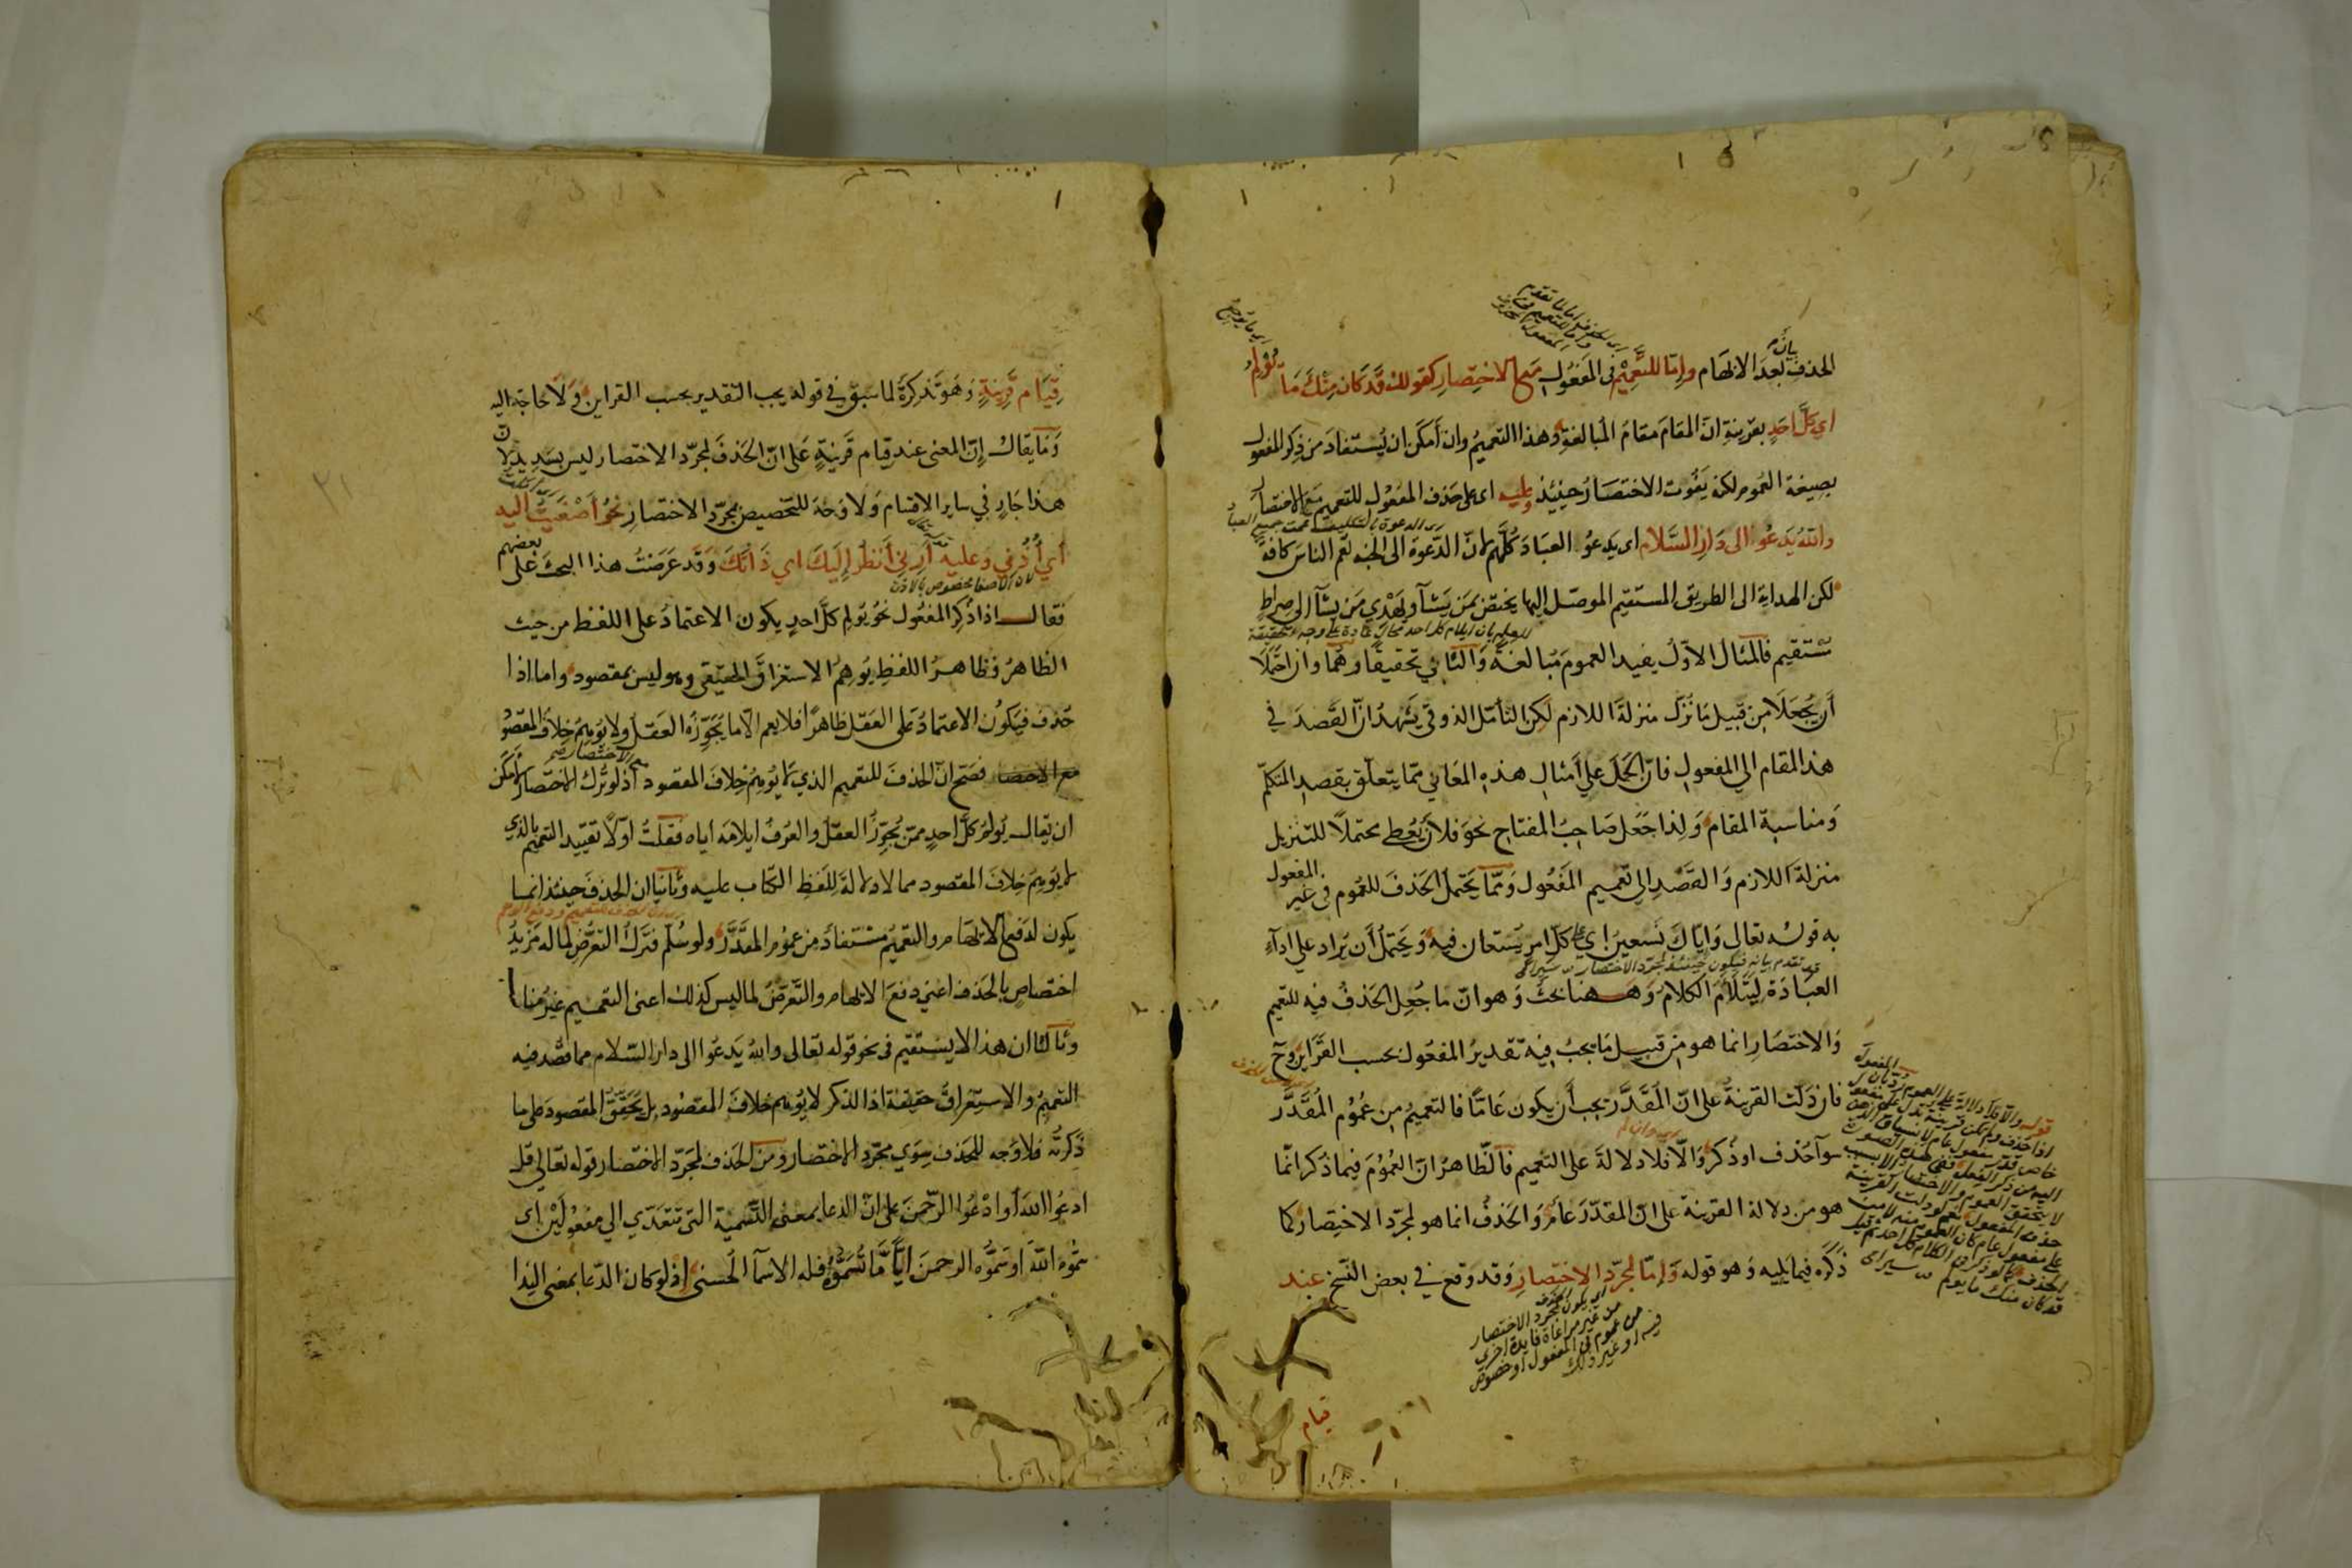 الحذف لبعد الابهام واما للتعميم في المفعول مع الاختصار كقولك قد كان منك ما يؤلم
اي كل احد بقرينة ان المقام مقام المبالغة وهذا التعميم وان امكن ان يستفاد من ذكر المفعول
بصيغة العموم لكنه يفوت الاختصار حينئذ وعليه اى على حذف المفعول للتعميم مع الاختصار
والله يدعوا الى دار السلام اى يدعو العباد كلهم لان الدعوة الى الجنة تعم الناس كافة
لكن الهداية الى الطريق المستقيم الموصل اليها يختص بمن يشآ ويهدي من يشآ الى صراط
مستقيم فالمثال الاول يفيد العموم مبالغة والثاني تحقيقا وهما وان احتملا
أن يجعلا من قبيل ما نزل منزلة اللازم لكن التأمل الذوقي يشهد ان القصد في
هذا المقام الي المفعول فان الحمل علي أمثال هذه المعاني مما يتعلق بقصد المتكلم
ومناسبة المقام ولذا جعل صاحب المفتاح نحو فلان يعطي محتملا للتنزيل
منزلة اللازم والقصد الي تعميم المفعول ومما يحتمل الحذف للعموم في غير المفعول
به قوله تعالى واياك نستعين اي على كل امر يستعان فيه ويحتمل أن يراد علي ادآء
العبادة ليتلاءم الكلام وههنا بحث وهو ان ما جعل الحذف فيه للتعميم
والاختصار انما هو من قبيل ما يجب فيه تقدير المفعول بحسب القراين وح
فان دلت القرينة على ان المقدر يجب أن يكون عاما فالتعميم من عموم المقدر
سوآ حذف او ذكر والا فلا دلالة على التعميم فالظاهر ان العموم فيما ذكر انما
هو من دلالة القرينة على ان المقدر عام والحذف انما هو لمجرد الاختصار كما
ذكره فيما يليه وهو قوله واما لمجرد الاختصار وقد وقع في بعض النسخ عند
اي يكون الحذف لمجرد الاختصار
من غير مراعاة فايدة اخرى
من عموم في المفعول او خصوص
فيه او غير ذلك
قيام
قيام قرينة وهو تذكرة لما سبق في قوله يجب التقدير بحسب القراين ولا حاجة اليه
وما يقال إن المعنى عند قيام قرينة على ان الحذف لمجرد الاختصار ليس بسديد لان
هذا جار في ساير الاقسام ولا وجه للتخصيص بمجرد الاختصار نحو أصغيت اليه
أي أذني وعليه أرني أنظر إليك اي ذاتك وقد عرضت هذا البحث على بعضهم
لان الاصغا مخصوص بالاذن
فقال اذا ذكر المفعول نحو يولم كل احد يكون الاعتماد على اللفظ من حيث
الظاهر وظاهر اللفظ يوهم الاستغراق الحقيقي وهو ليس بمقصود واما اذا
حذف فيكون الاعتماد على العقل ظاهرا فلا يعم الا ما يجوزه العقل ولا يوهم خلاف المقصود
فصح ان الحذف للتعميم الذي لا يوهم خلاف المقصود اذ لو ترك الاختصار لأمكن
ان يقال يولم كل احد ممن يجوز العقل والعرف ايلامه اياه فقلت اولا تقييد التعميم بالذي
لا يوهم خلاف المقصود مما لا دلالة للفظ الكتاب عليه وثانيا ان الحذف حينئذ انما
يكون لدفع الابهام والتعميم مستفاد من عموم المقدر ولو سلم فترك التعرض لما له مزيد
اختصاص بالحذف اعني دفع الابهام والتعرض لما ليس كذلك اعنى التعميم غير مناسب
وثالثا ان هذا لا يستقيم في نحو قوله تعالى والله يدعوا الى دار السلام مما قصد فيه
التعميم والاستغراق حقيقة اذ الذكر لا يوهم خلاف المقصود بل تحقق المقصود على ما
ذكرته فلا وجه للحذف سوي مجرد الاختصار ومن الحذف لمجرد الاختصار قوله تعالى قل
ادعوا الله أو ادعوا الرحمن على ان الدعا بمعنى التسمية التي تتعدي الي مفعولين اى
سموه الله او سموه الرحمن أيا ما تسموه فله الاسمآ الحسنى إذ لو كان الدعا بمعنى الندا